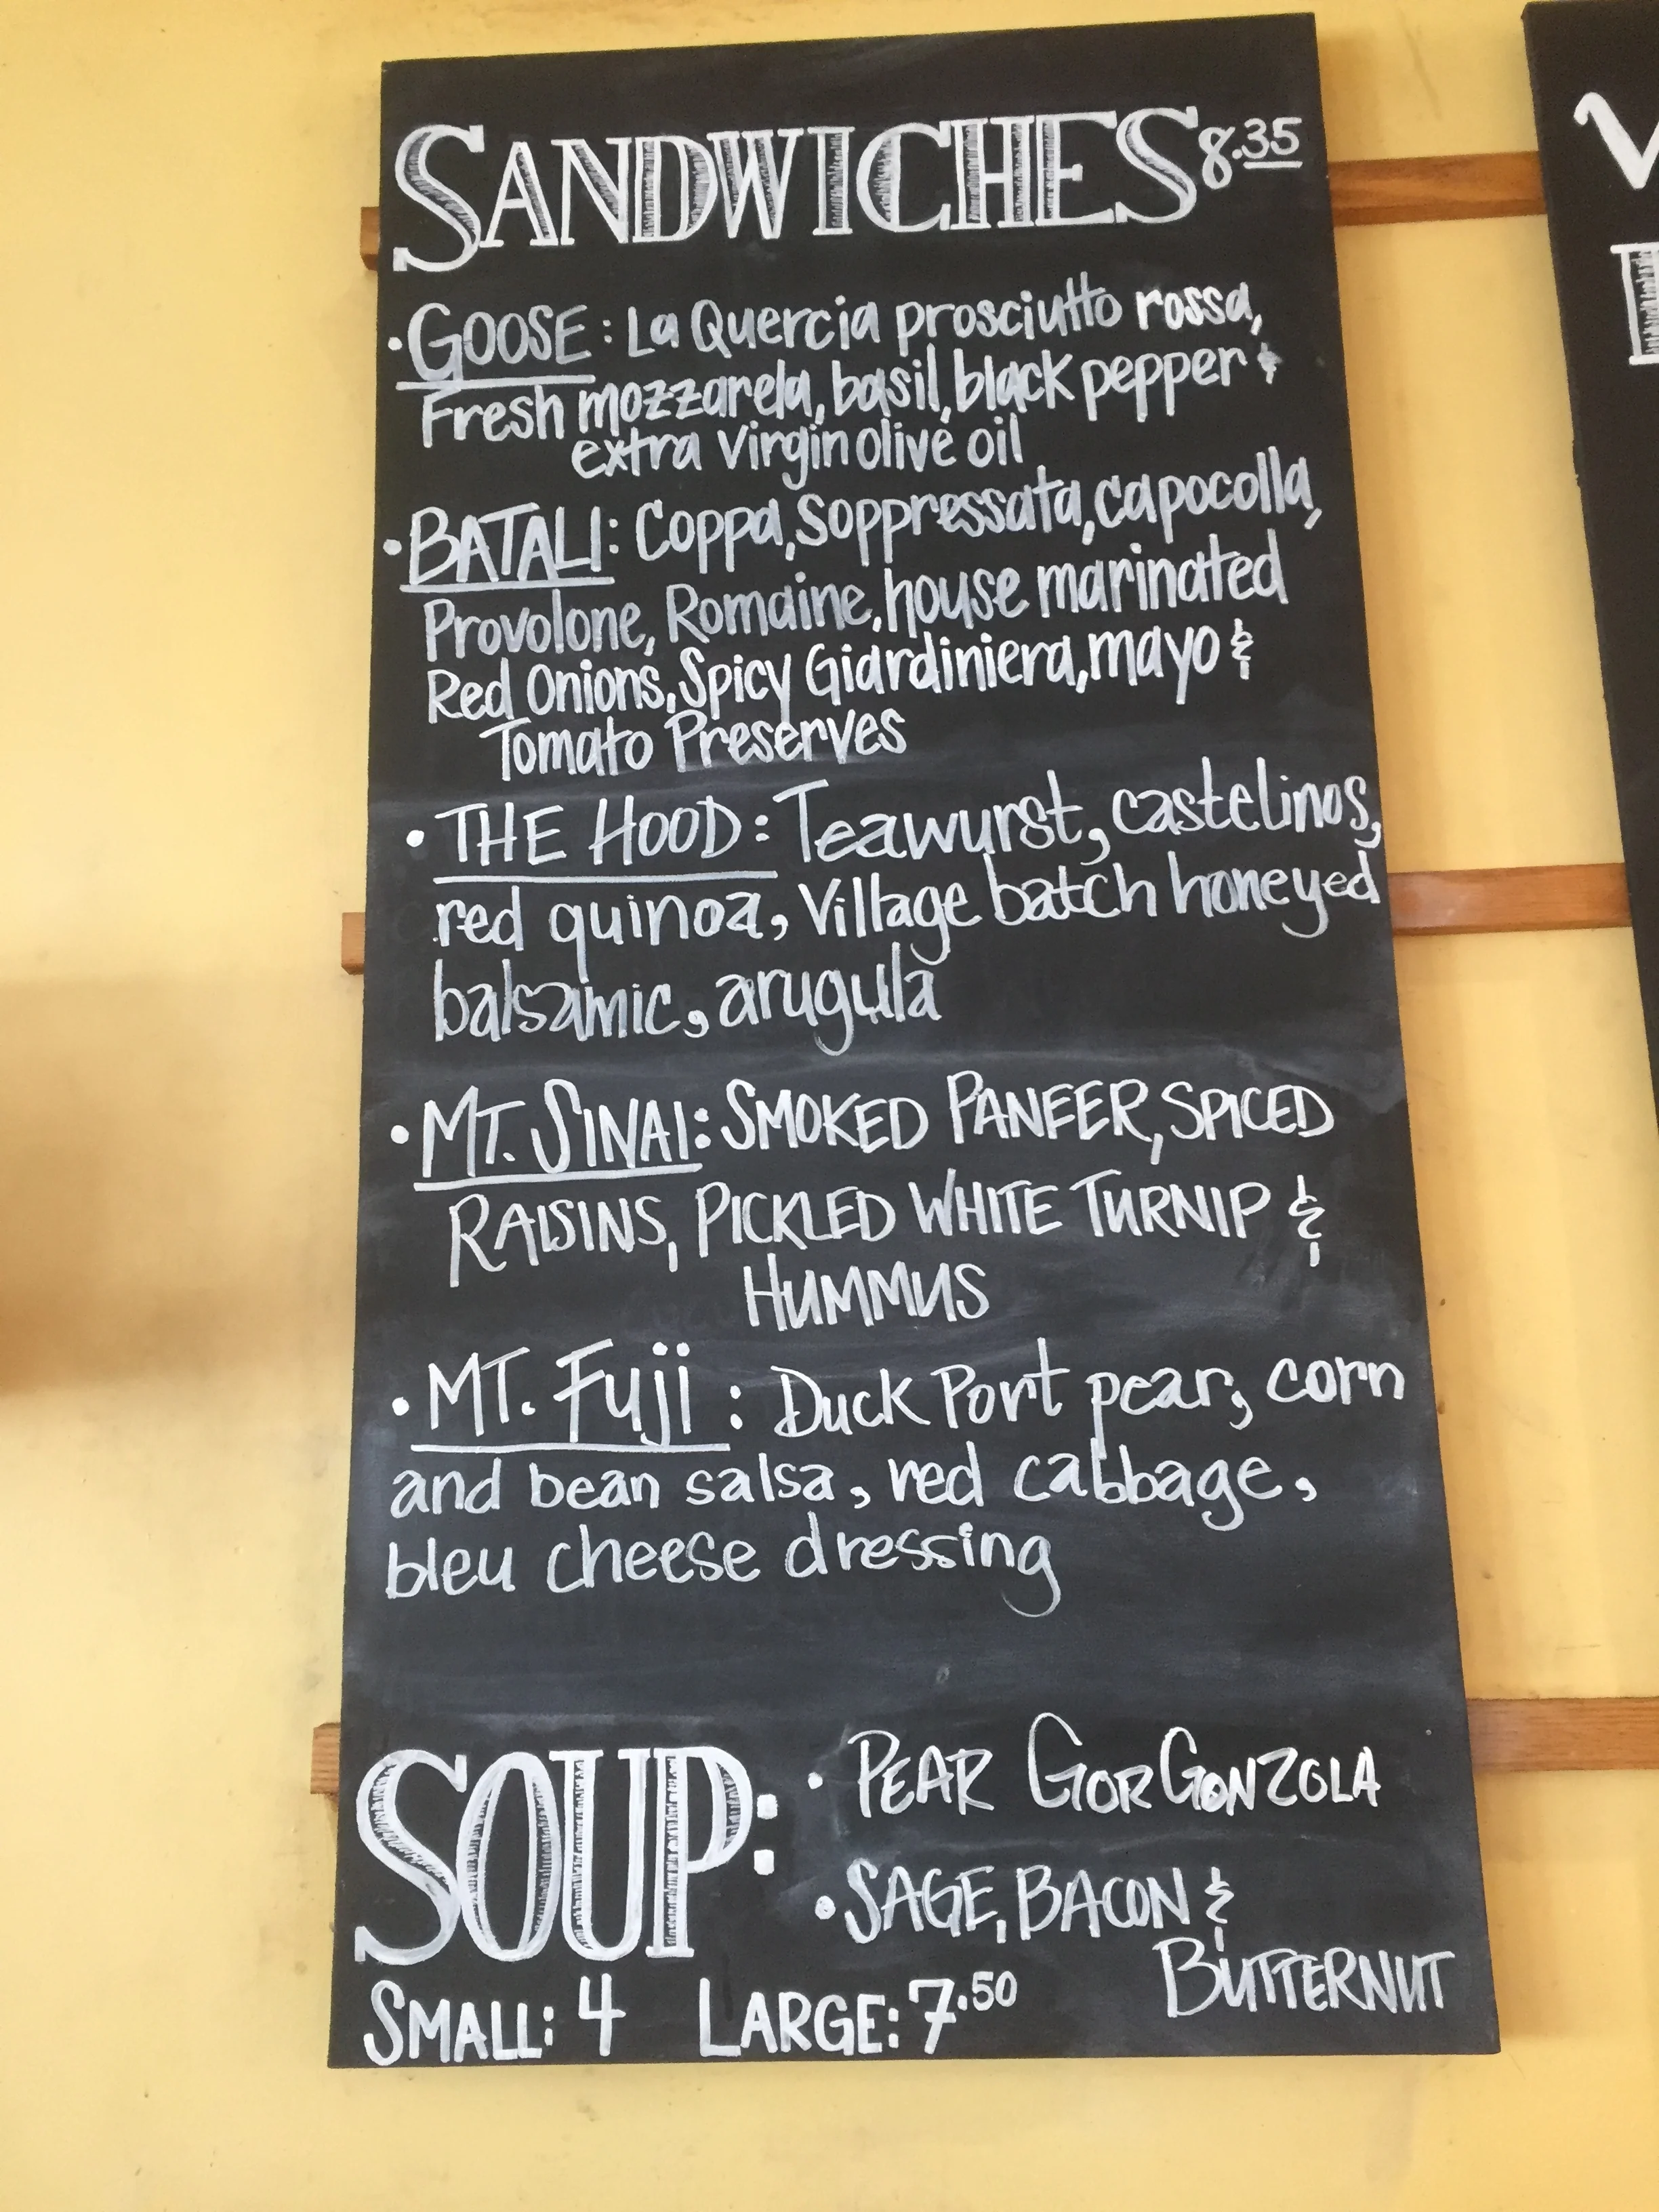 SANDWICHES 8.35
• GOOSE: La Quercia prosciutto rossa,
Fresh mozzarela, basil, black pepper &
extra virgin olive oil
• BATALI: Coppa, Soppressata, capocolla,
Provolone, Romaine, house marinated
Red Onions, Spicy Giardiniera, mayo &
Tomato Preserves
• THE HOOD: Teawurst, castelinos,
red quinoa, Village batch honeyed
balsamic, arugula
• MT. SINAI: SMOKED PANEER, SPICED
RAISINS, PICKLED WHITE TURNIP &
HUMMUS
• MT. Fuji: Duck Port pear, corn
and bean salsa, red cabbage,
bleu cheese dressing
SOUP: • PEAR GORGONZOLA
• SAGE, BACON &
BUTTERNUT
SMALL: 4 LARGE: 7.50